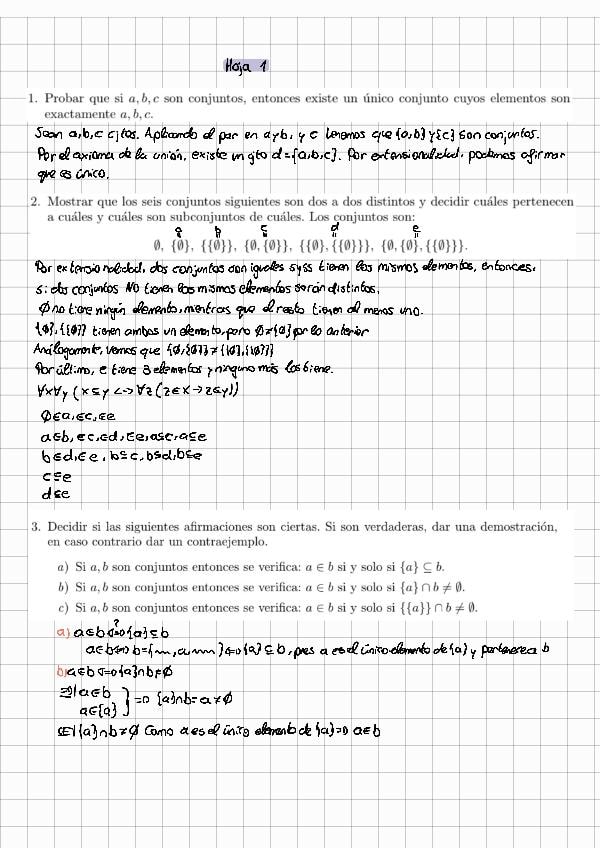 Hoja 1
1. Probar que si a, b, c son conjuntos, entonces existe un único conjunto cuyos elementos son
exactamente a, b, c.
Sean a,b,c cjtos. Aplicando el par en a y b, y c tenemos que {a,b} y {c} son conjuntos.
Por el axioma de la unión, existe un cjto d={a,b,c}. Por extensionalidad, podemos afirmar
que es único.
2. Mostrar que los seis conjuntos siguientes son dos a dos distintos y decidir cuáles pertenecen
a cuáles y cuáles son subconjuntos de cuáles. Los conjuntos son:
a b c d e
∅, {∅}, {{∅}}, {∅, {∅}}, {{∅}, {{∅}}}, {∅, {∅}, {{∅}}}.
Por extensionalidad, dos conjuntos son iguales syss tienen los mismos elementos, entonces,
si dos conjuntos NO tienen los mismos elementos serán distintos.
∅ no tiene ningún elemento, mientras que el resto tienen al menos uno.
{∅}, {{∅}} tienen ambos un elemento, pero ∅≠{∅} por lo anterior
Análogamente, vemos que {∅,{∅}}≠{{∅},{{∅}}}
Por último, e tiene 3 elementos y ninguno más los tiene.
∀x∀y (x⊆y <-> ∀z (z∈x → z∈y))
∅∈a,∈c,∈e
a∈b,∈c,∈d,∈e,a⊆c,a⊆e
b∈d,∈e,b⊆c,b⊆d,b⊆e
c⊆e
d⊆e
3. Decidir si las siguientes afirmaciones son ciertas. Si son verdaderas, dar una demostración,
en caso contrario dar un contraejemplo.
a) Si a, b son conjuntos entonces se verifica: a ∈ b si y solo si {a} ⊆ b.
b) Si a, b son conjuntos entonces se verifica: a ∈ b si y solo si {a} ∩ b ≠ ∅.
c) Si a, b son conjuntos entonces se verifica: a ∈ b si y solo si {{a}} ∩ b ≠ ∅.
a) a∈b <=?=> {a}⊆b
a∈b <=> b={...,a,...} <=> {a}⊆b, pues a es el único elemento de {a} y pertenece a b
b) a∈b <=> {a}∩b≠∅
⇒| a∈b
a∈{a} } => {a}∩b=a≠∅
⇐| {a}∩b≠∅ Como a es el único elemento de {a} => a∈b